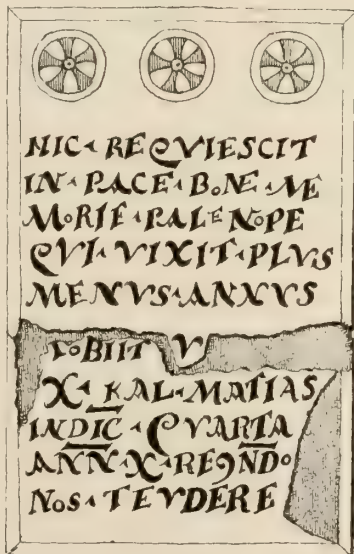 HIC · REQVIESCIT
IN · PACE · BONE · ME
MORIE · PALENOPE
QVI · VIXIT · PLVS
MENVS · ANNVS
OBIIT V
X · KAL · MATIAS
INDIC · QVARTA
ANN · X · REGNDO
NOS · TEVDERE